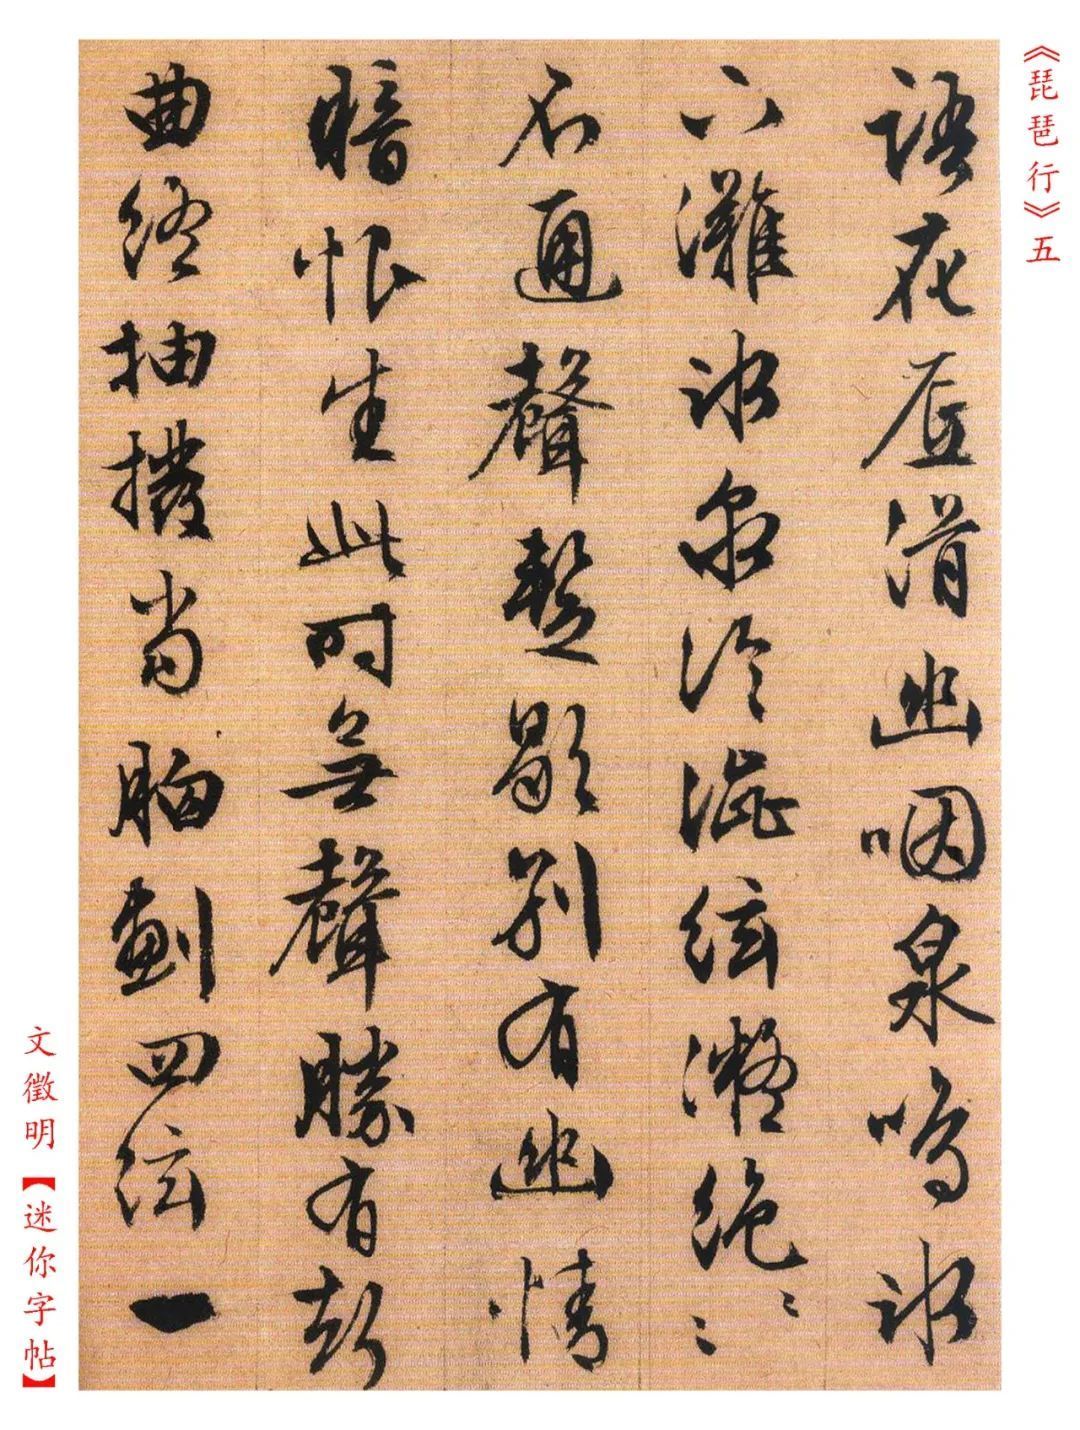 《琵琶行》五
語花底滑幽咽泉鳴冰
下灘冰泉冷澀絃凝絕〻〻
不通聲暫歇別有幽情
暗恨生此時無聲勝有聲
曲終抽撥當胸劃四絃一
文徵明【迷你字帖】